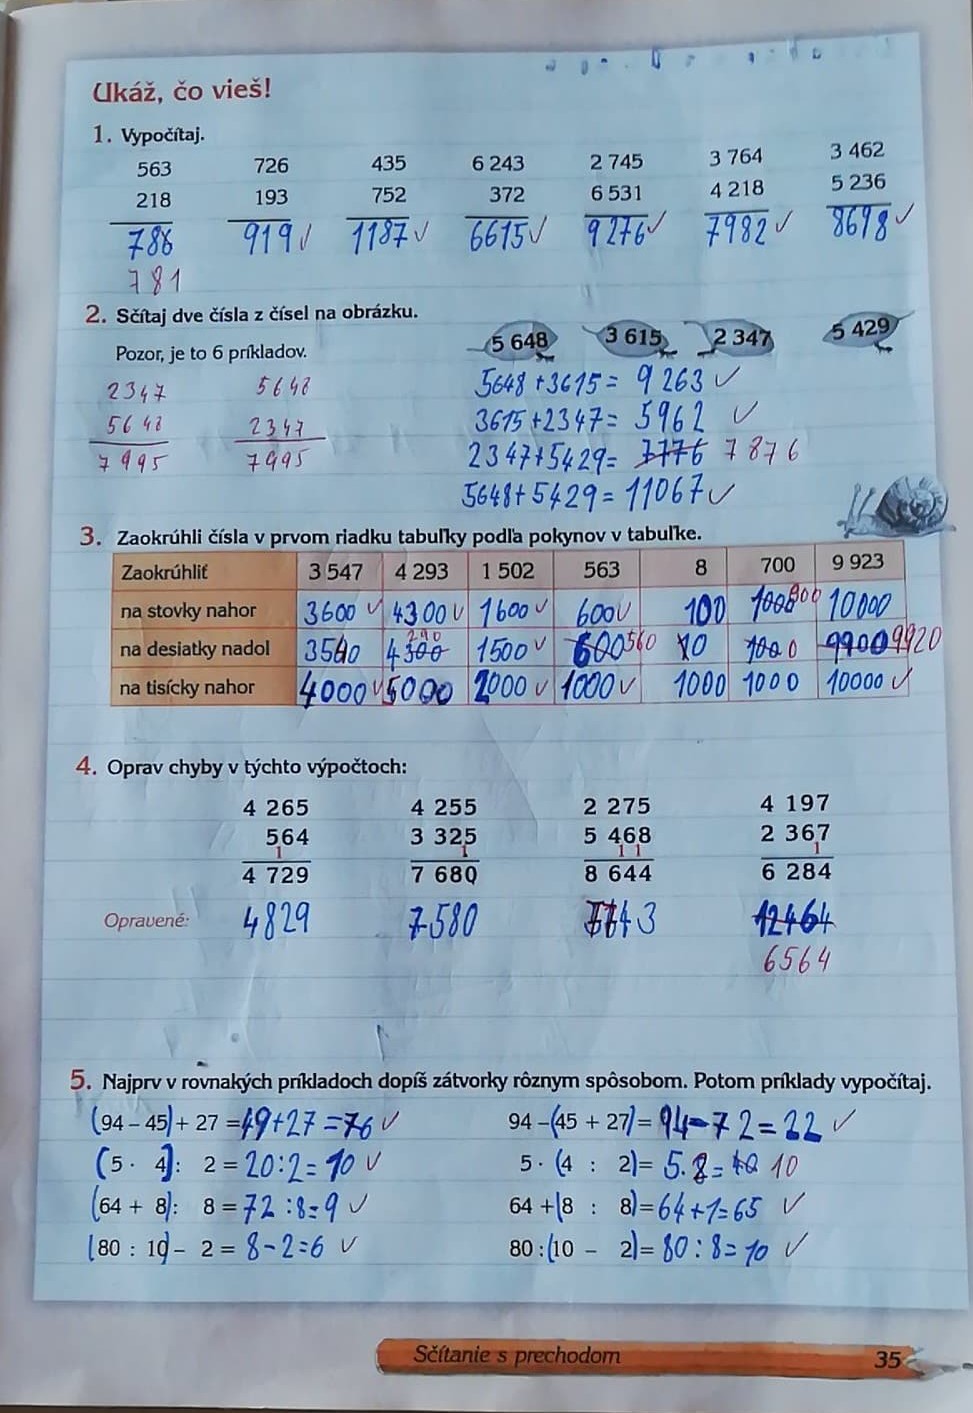 Ukáž, čo vieš!
1. Vypočítaj.
563 726 435 6 243 2 745 3 764 3 462
218 193 752 372 6 531 4 218 5 236
786 919 ✓ 1187 ✓ 6615 ✓ 9276 ✓ 7982 ✓ 8698 ✓
781
2. Sčítaj dve čísla z čísel na obrázku.
Pozor, je to 6 príkladov.
5 648 3 615 2 347 5 429
2347 5648
5648 2347
7995 7995
5648 + 3615 = 9 263 ✓
3615 + 2347 = 5962 ✓
2347 + 5429 = 7776 7876
5648 + 5429 = 11067 ✓
3. Zaokrúhli čísla v prvom riadku tabuľky podľa pokynov v tabuľke.
Zaokrúhliť 3 547 4 293 1 502 563 8 700 9 923
na stovky nahor 3600 ✓ 4300 ✓ 1600 ✓ 600 ✓ 100 800 10000
na desiatky nadol 3540 4300 290 1500 ✓ 600 560 10 9900 9920
na tisícky nahor 4000 ✓ 5000 2000 ✓ 1000 ✓ 1000 1000 10000 ✓
4. Oprav chyby v týchto výpočtoch:
4 265 4 255 2 275 4 197
564 3 325 5 468 2 367
1 1 1 1 1
4 729 7 680 8 644 6 284
Opravené: 4829 7580 7743 12464
6564
5. Najprv v rovnakých príkladoch dopíš zátvorky rôznym spôsobom. Potom príklady vypočítaj.
(94 – 45) + 27 = 49+27 = 76 ✓ 94 –(45 + 27)= 94–72 = 22 ✓
(5 · 4): 2 = 20:2 = 10 ✓ 5 · (4 : 2)= 5.2 = 10
(64 + 8): 8 = 72 :8 = 9 ✓ 64 +(8 : 8)= 64+1=65 ✓
(80 : 10) – 2 = 8-2=6 ✓ 80 :(10 – 2)= 80:8= 10 ✓
Sčítanie s prechodom 35